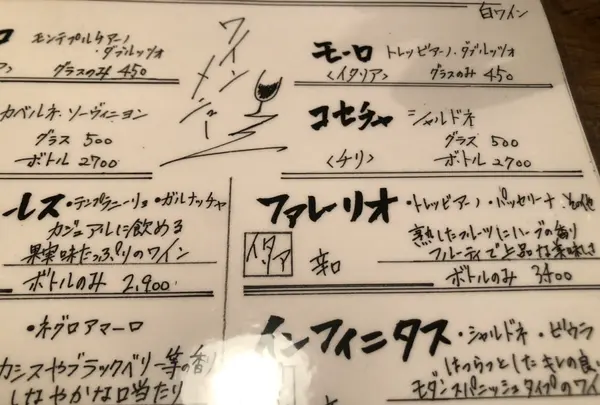 白ワイン
ワインメニュー
モンテプルケアーノ
・ダブルッツォ
グラスのみ 450
カベルネ・ソーヴィニヨン
グラス 500
ボトル 2700
レス・テンプラニーリョ・ガルナッチャ
カジュアルに飲める
果実味たっぷりのワイン
ボトルのみ 2,900
・ネグロアマーロ
カシスやブラックベリー等の香り
しなやかな口当たり
モーロ トレッビアーノ・ダブルッツォ
<イタリア> グラスのみ 450
コセチャ シャルドネ
グラス 500
<チリ> ボトル 2700
ファレーリオ ・トレッビアーノ・パッセリーナ・その他
熟したフルーツにハーブの香り
イタリア 辛口 フルーティで上品な美味しさ
ボトルのみ 3400
インフィニタス・シャルドネ・ビウラ
はつらつとしたキレの良い
モダンスパニッシュタイプのワイ